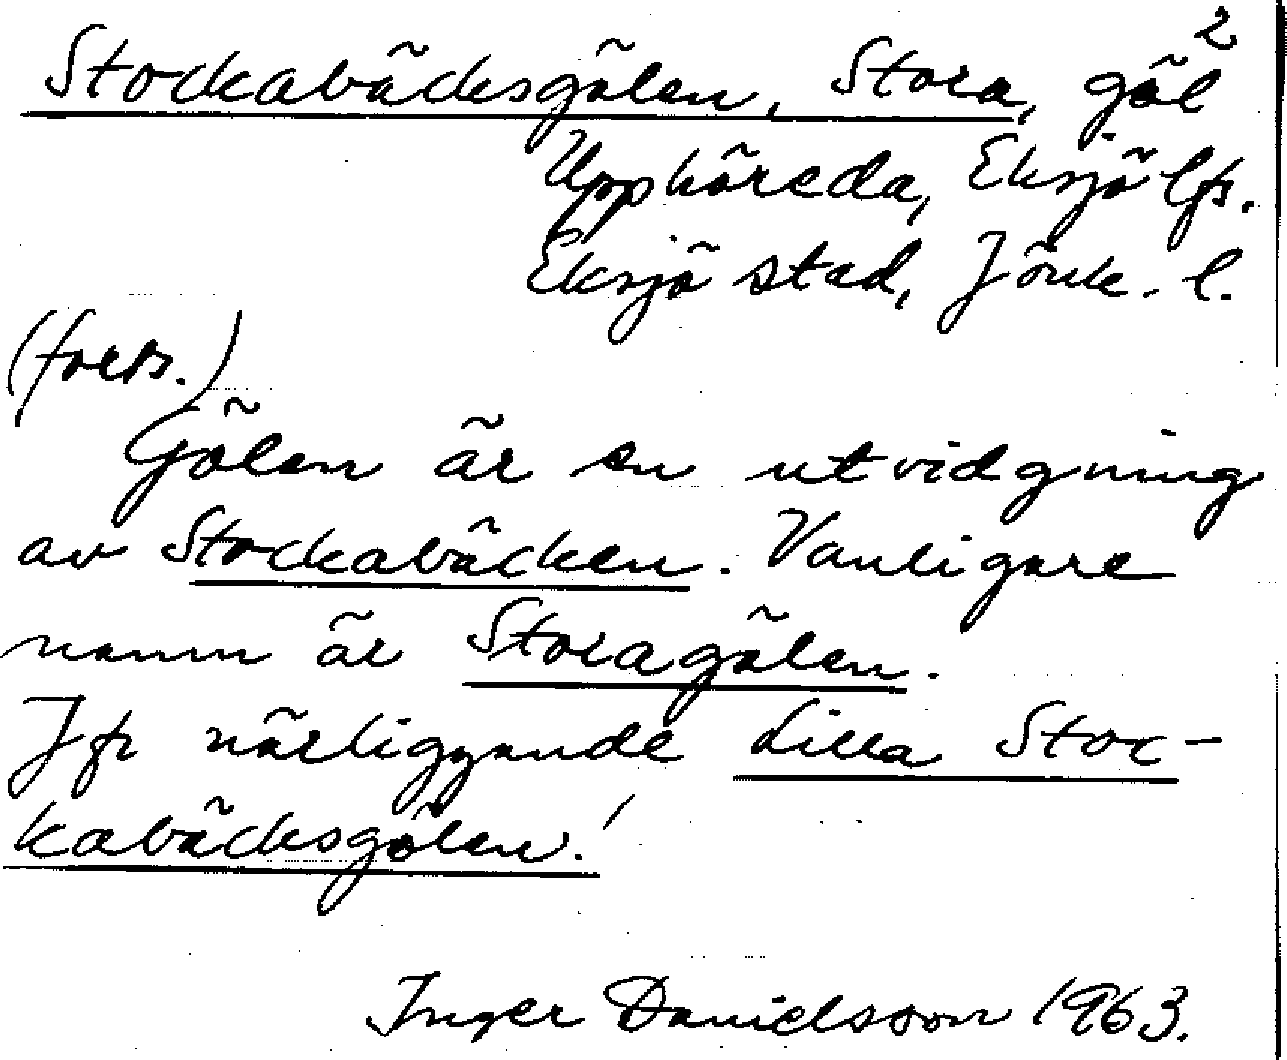 2
Stockabäcksgölen, Stora, göl
Upphöreda, Eksjö lfs.
Eksjö stad, Jönk. l.
(forts.)
Gölen är en utvidgning
av Stockabäcken. Vanligare
namn är Storagölen.
Jfr närliggande Lilla Stoc-
kabäcksgölen!
Inger Danielsson 1963.